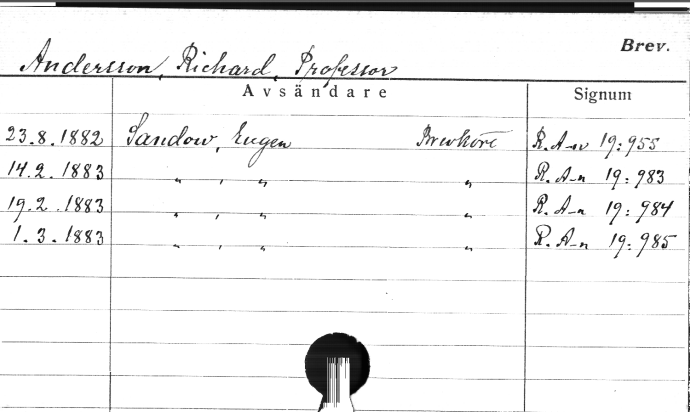 Brev.
Andersson, Richard, Professor
Avsändare Signum
23.8.1882 Sandow, Eugen R. A-n 19:955
14.2.1883 " , " " R. A-n 19:983
19.2.1883 " , " " R. A-n 19:984
1.3.1883 " , " " R. A-n 19:985